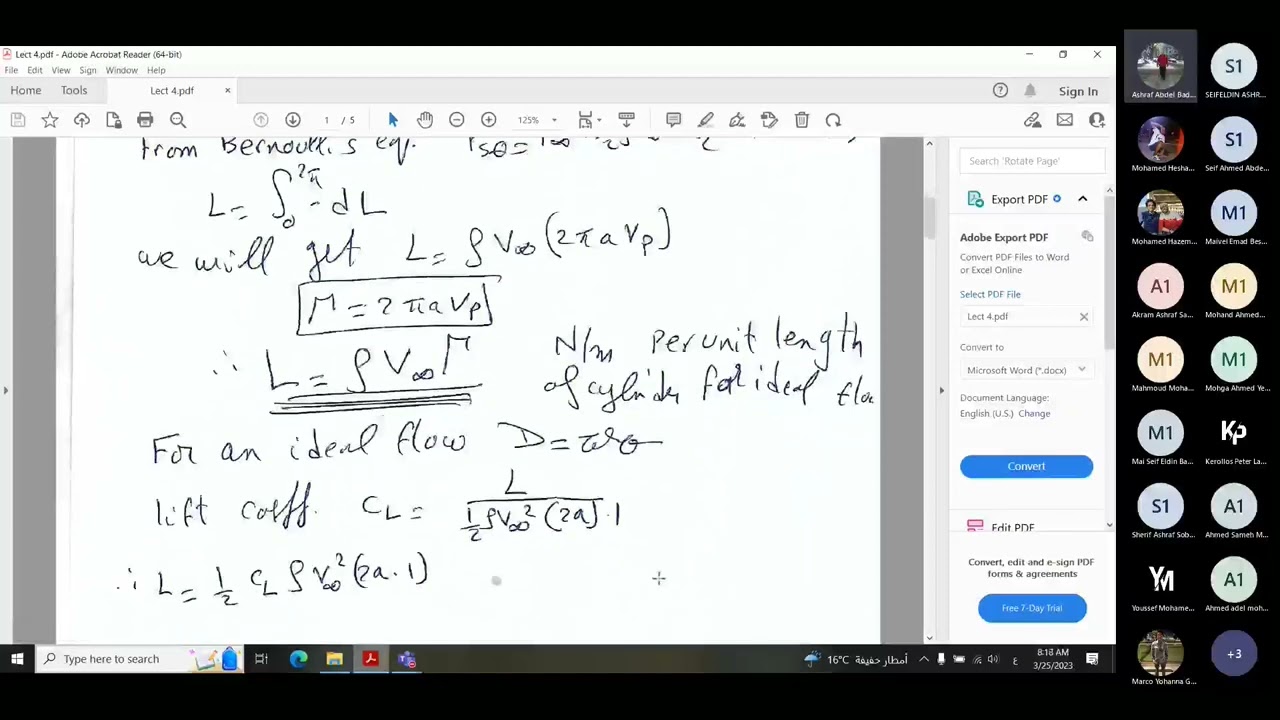 Lect 4.pdf - Adobe Acrobat Reader (64-bit)
File Edit View Sign Window Help
Home Tools Lect 4.pdf × Sign In
1 / 5 125%
from Bernoulli's eq.
L = ∫₀^2π - dL
we will get L = ρ V∞ (2πa Vp)
Γ = 2πa Vp
∴ L = ρ V∞ Γ N/m per unit length
of cylinder for ideal flo
For an ideal flow D = zero
lift coeff. CL = L / ½ ρV∞² (2a).1
∴ L = ½ CL ρ V∞² (2a.1)
Search 'Rotate Page'
Export PDF
Adobe Export PDF
Convert PDF Files to Word
or Excel Online
Select PDF File
Lect 4.pdf ×
Convert to
Microsoft Word (*.docx)
Document Language:
English (U.S.) Change
Convert
Edit PDF
Convert, edit and e-sign PDF
forms & agreements
Free 7-Day Trial
S1
Ashraf Abdel Bad... SEIFELDIN ASHR...
S1
Mohamed Hesha... Seif Ahmed Abde...
M1
Mohamed Hazem... Maivel Emad Bes...
A1 M1
Akram Ashraf Sa... Mohand Ahmed...
M1 M1
Mahmoud Moha... Mohga Ahmed Ye...
M1 KP
Mai Seif Eldin Ba... Kerollos Peter La...
S1 A1
Sherif Ashraf Sob... Ahmed Sameh M...
YM A1
Youssef Mohame... Ahmed adel moh...
+3
Marco Yohanna G...
Type here to search
16°C أمطار خفيفة
ع
8:18 AM
3/25/2023